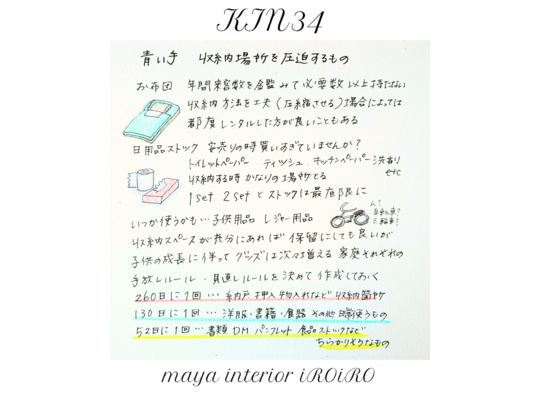 KIN34
青い手 収納場所を圧迫するもの
お布団 年間来客数を鑑みて必要数以上持たない
収納方法を工夫(圧縮させる)場合によっては
都度レンタルした方が良いこともある
日用品ストック 安売りの時買いすぎていませんか?
トイレットペーパー ティッシュ キッチンペーパー 洗剤 etc
収納する時かなりの場所とる
1set 2setとストックは最低限に
いつか使うかも…子供用品 レジャー用品
ん?
自転車?
三輪車?
収納スペースが充分にあれば保留にしても良いが
子供の成長に伴ってグッズは次々増える 家庭それぞれの
手放しルール・見直しルールを決めて作成しておく
260日に1回…納戸 押入 物入れなど収納箇所
130日に1回…洋服・書籍・食器 その他日常使うもの
52日に1回…書類 DM パンフレット 食品ストックなど
ちらかりそうなもの
maya interior iROiRO